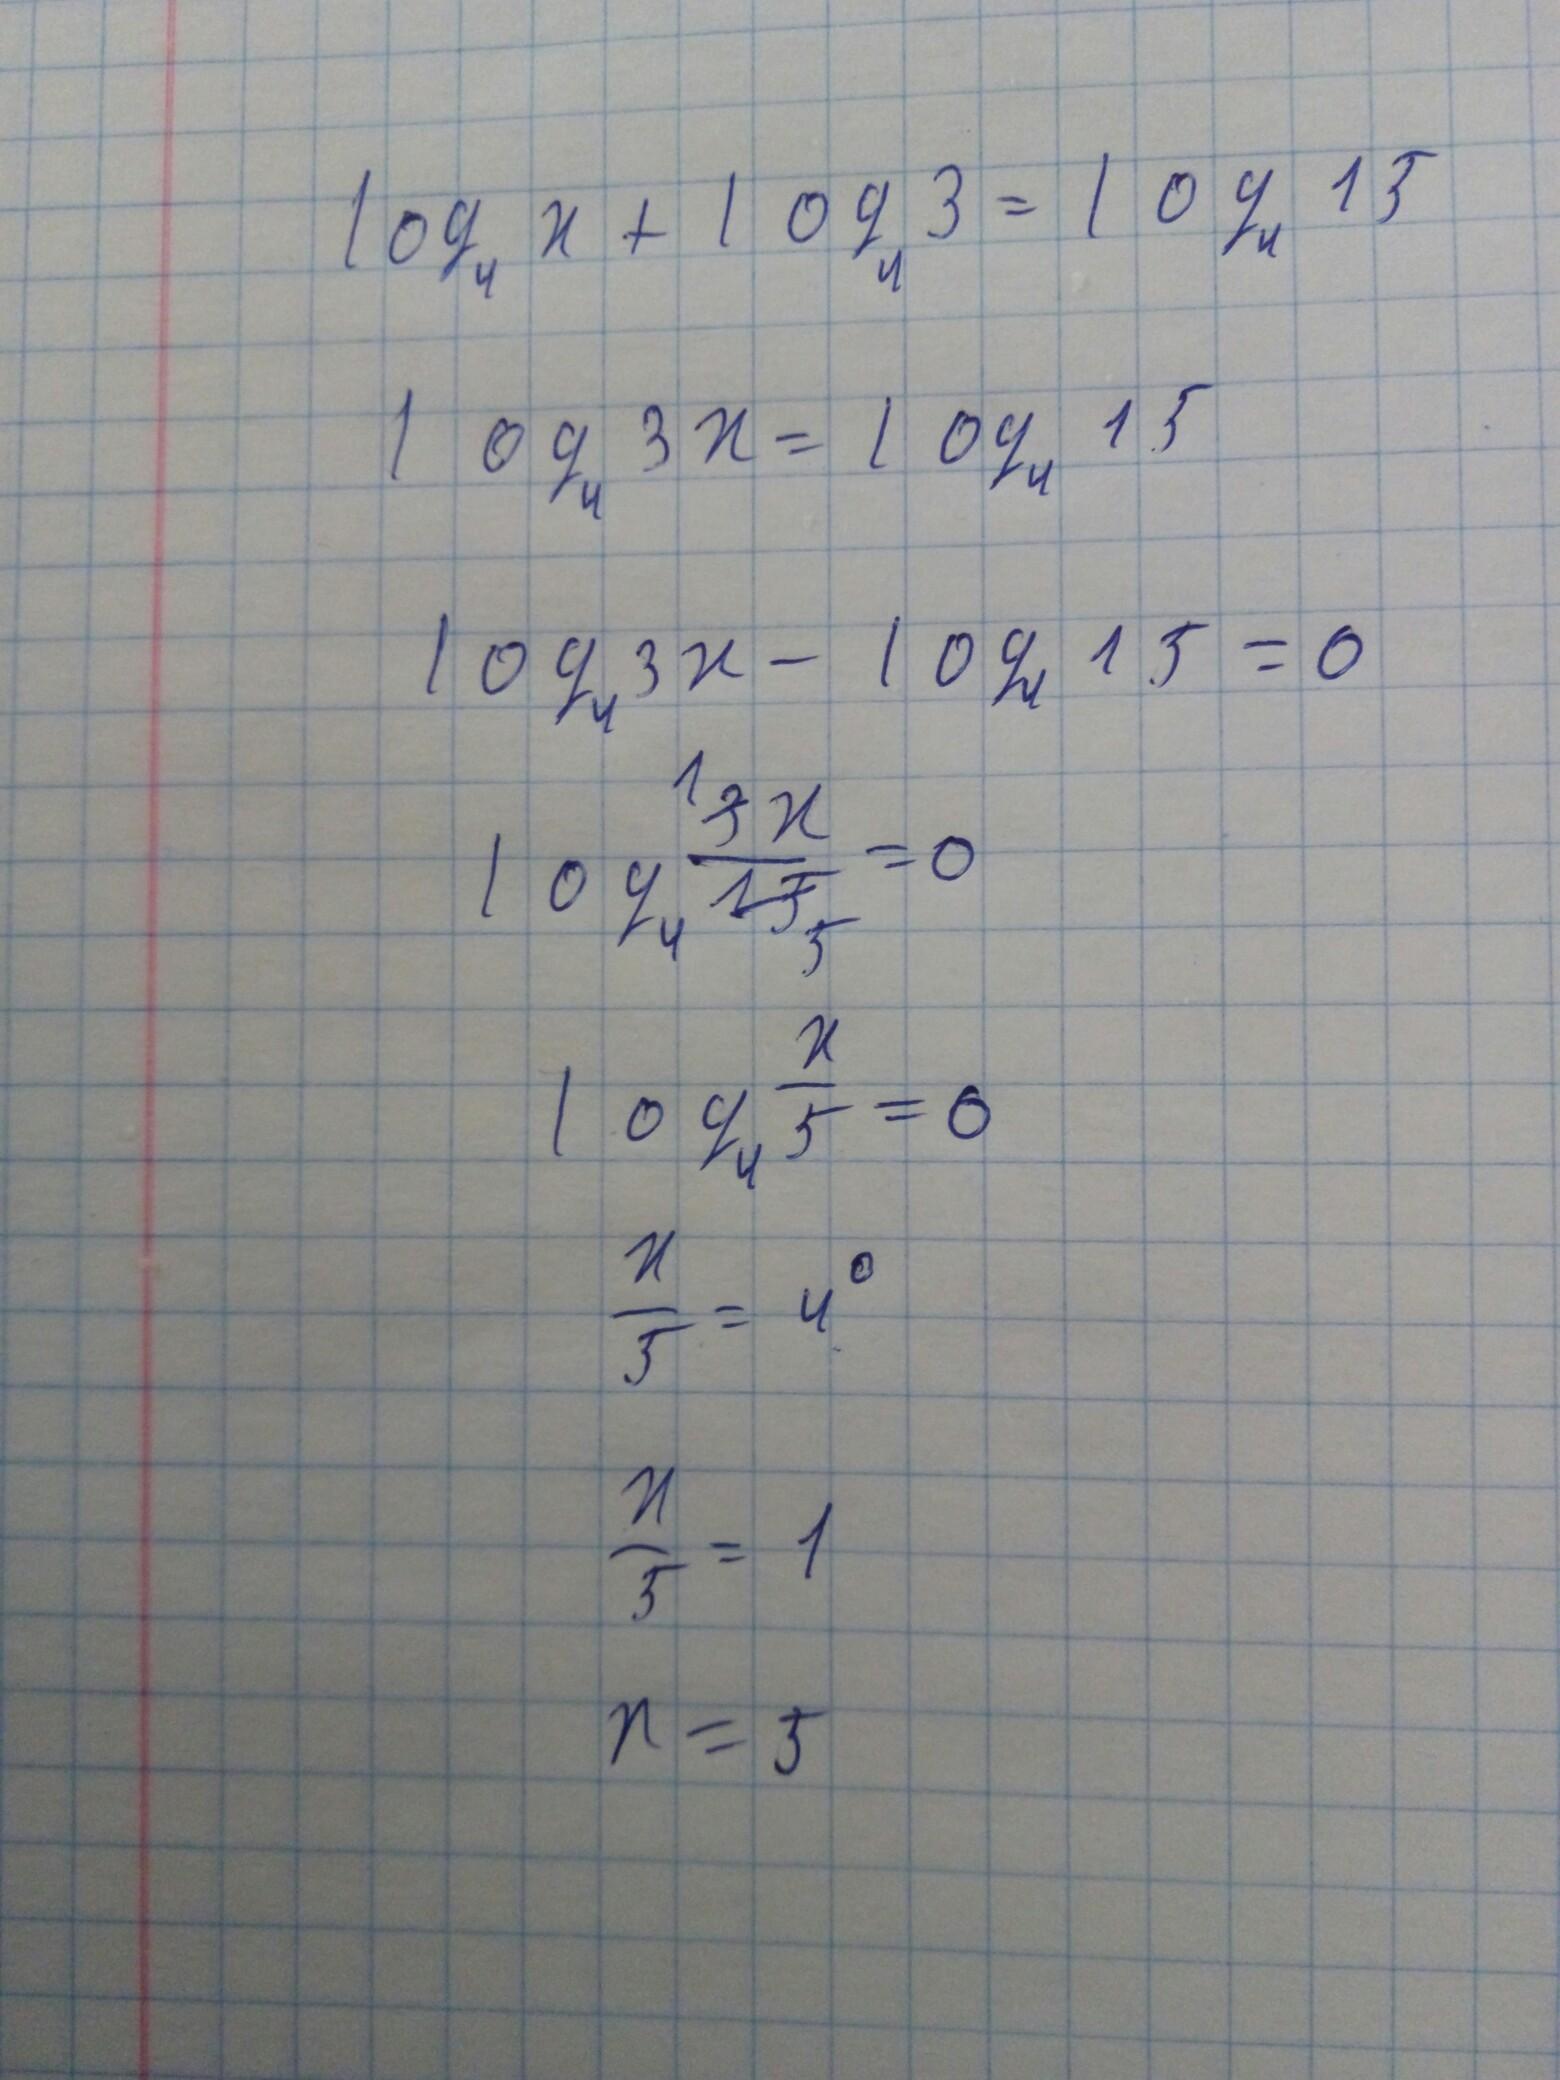 log₄ x + log₄ 3 = log₄ 15
log₄ 3x = log₄ 15
log₄ 3x - log₄ 15 = 0
log₄ ¹3x/15₅ = 0
log₄ x/5 = 0
x/5 = 4⁰
x/5 = 1
x = 5